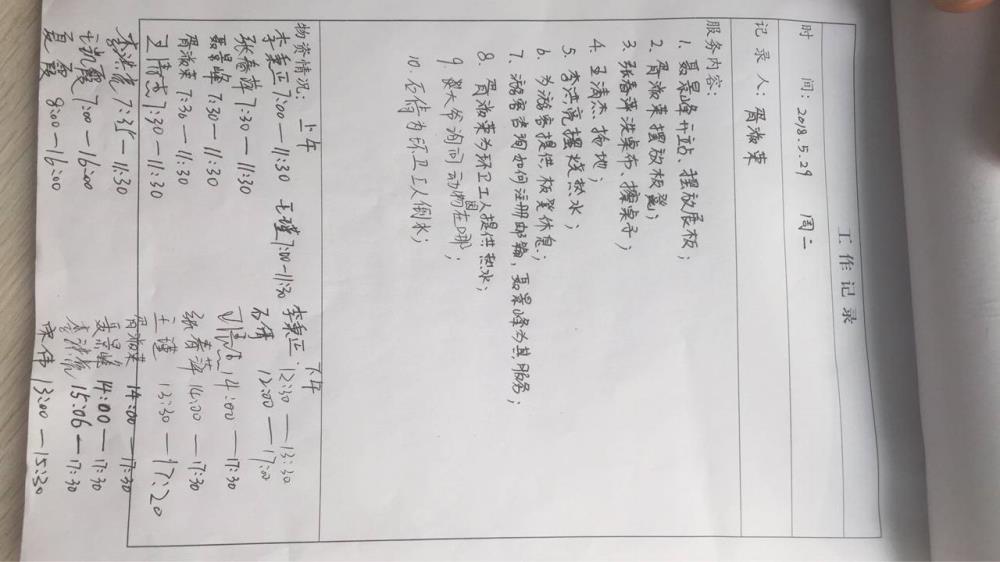 工作记录
时 间: 2018.5.29 周二
记 录 人: 胥淑荣
服务内容:
1. 聂景峰开站、摆放展板;
2. 胥淑荣摆放板凳;
3. 张春萍洗桌布、擦桌子;
4. 王清杰拖地;
5. 李洪亮摆烧热水;
6. 为游客提供板凳休息;
7. 游客咨询如何注册邮箱、聂景峰为其服务;
8. 胥淑荣为环卫工人提供热水;
9. 大爷询问动物园在哪;
10. 石倩为环卫工人倒水;
物资情况: 上午 下午
李秉正 7:00—11:30 王瑾 7:00—11:30 李秉正 12:30—13:30
张春萍 7:30—11:30 石倩 12:00—17:00
聂景峰 7:30—11:30 14:00—17:30
胥淑荣 7:30—11:30 张春萍 14:00—17:30
王清杰 7:30—11:30 王瑾 13:30—17:20
李洪亮 7:35—11:30 胥淑荣 14:00—17:30
7:00—16:00 聂景峰 14:00—17:30
夏霞 8:00—16:00 李洪亮 15:06—17:30
宋伟 13:00—15:30